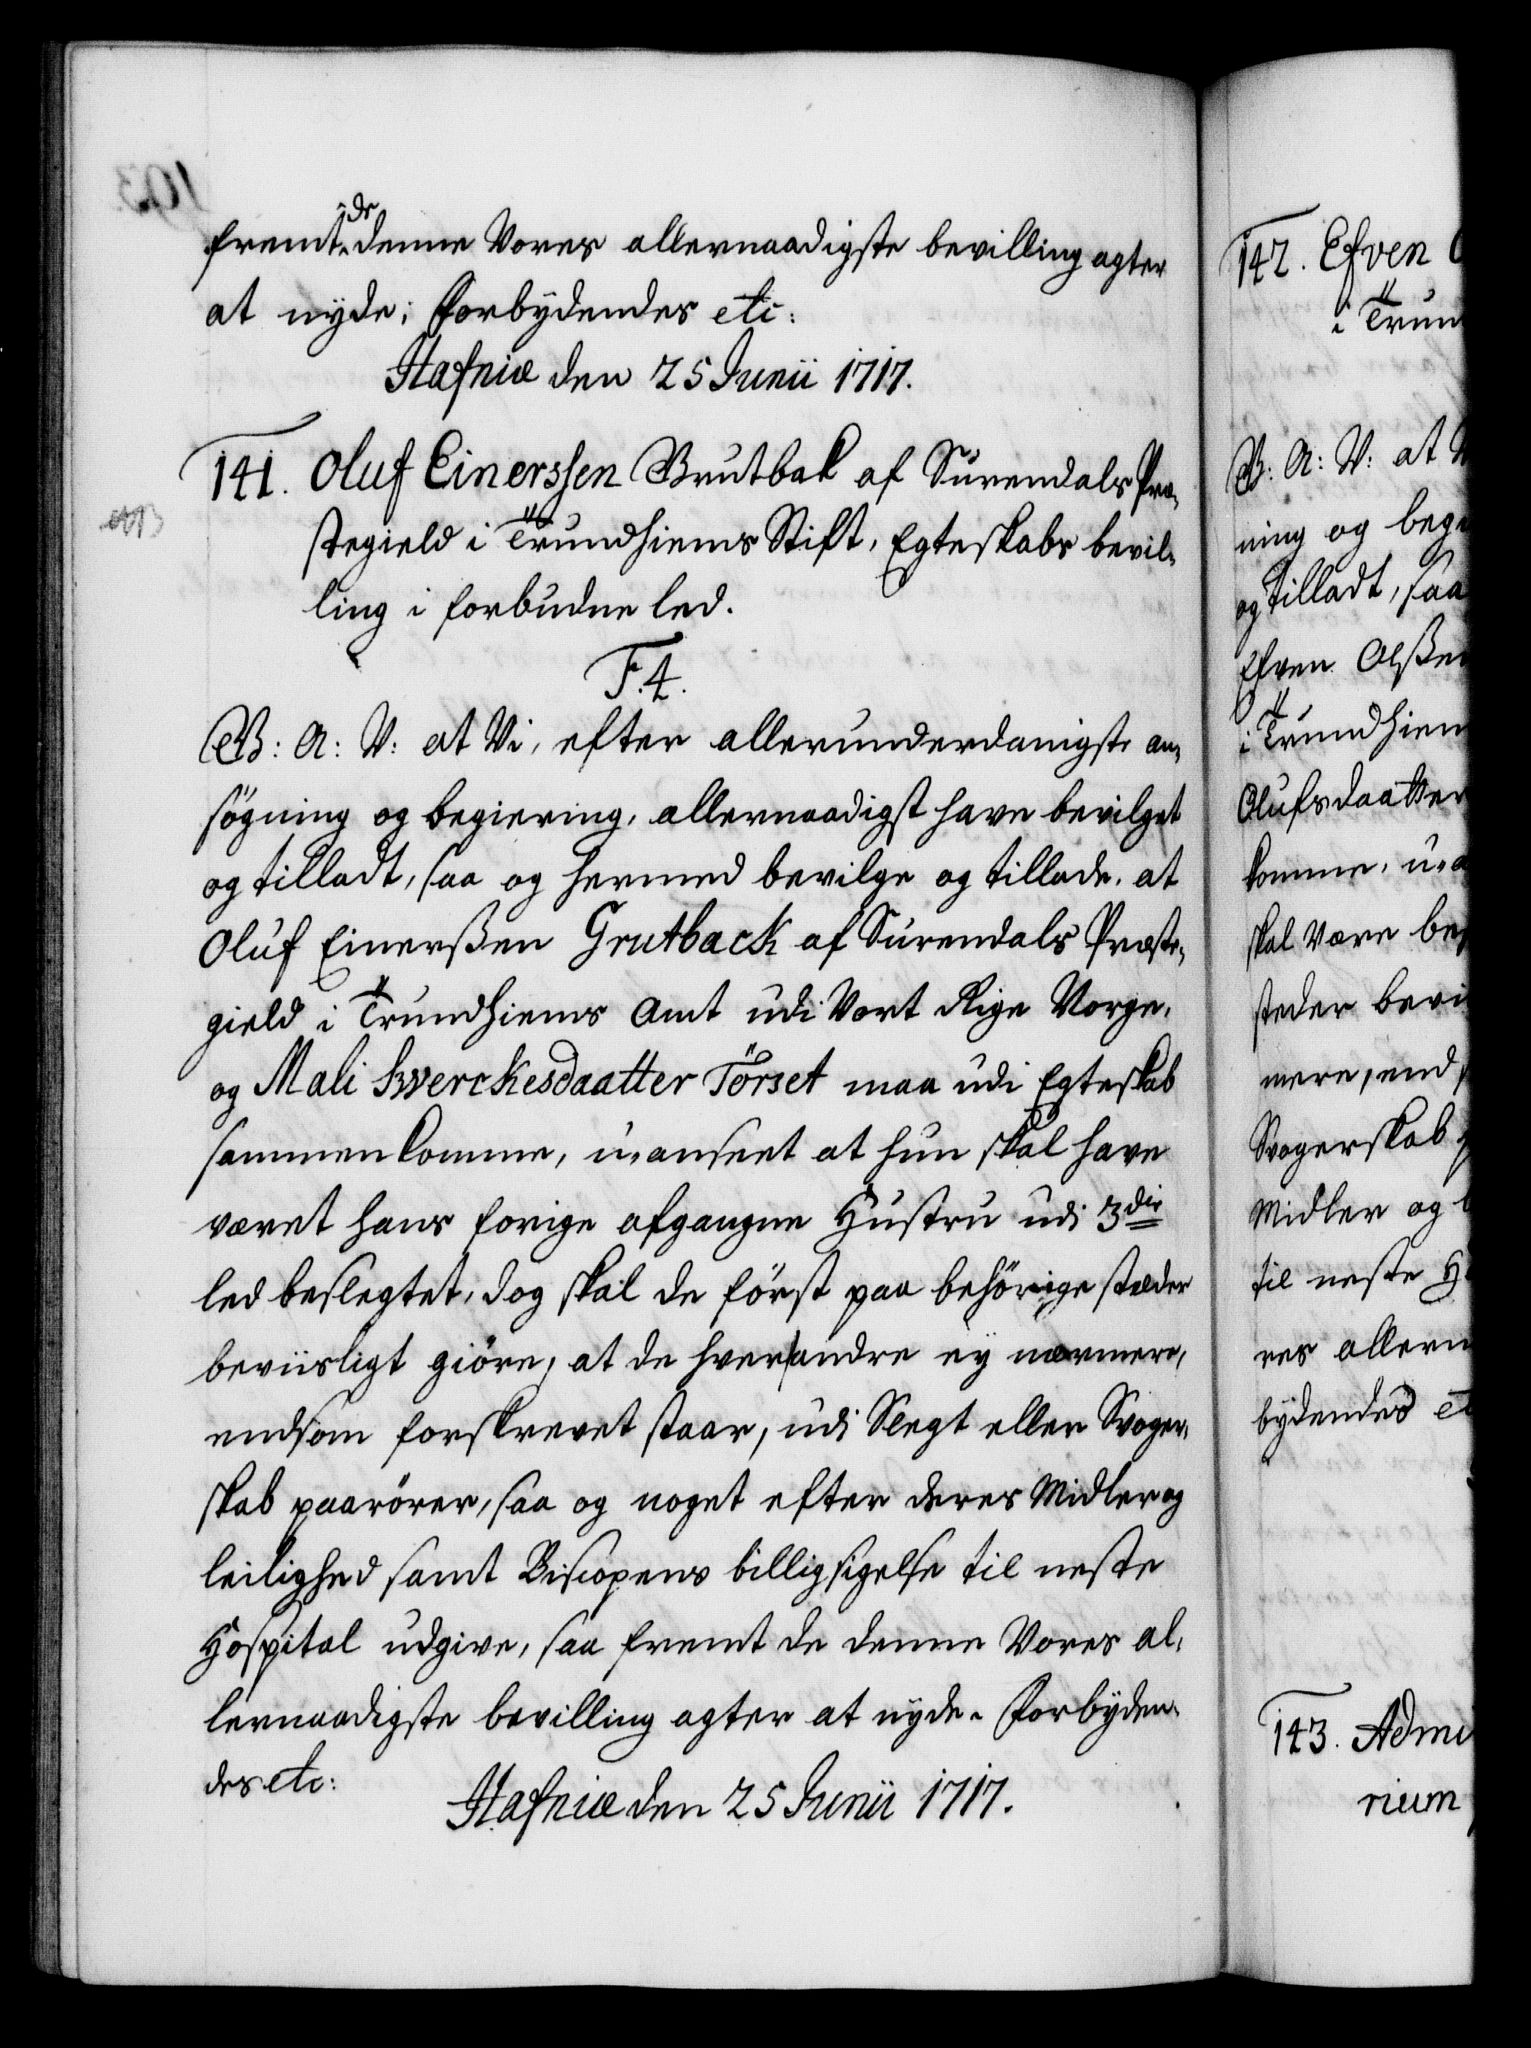 fremt de denne Vores allernaadigste bevilling agter
at nyde; Forbydendes etc:
Hafniæ den 25 Junii 1717.
141. Oluf Einerssen Grutbak af Surendals Præ-
stegield i Trundhiems Stift, Egteskabs bevil-
ling i forbudne led.
F. 4.
G: A: V: at Vi, efter allerunderdanigste an-
søgning og begiering, allernaadigst have bevilget
og tilladt, saa og hermed bevilge og tillade, at
Oluf Einerßen Grutback af Surendals Præste-
gield i Trundhiems Amt udi Vort Rige Norge,
og Mali Sverckesdaatter Törset maa udi Egteskab
sammenkomme, u-anseet at hun skal have
været hans forige afgangne Hustru udi 3die
led beslegtet, dog skal de först paa behörige stæder
beviisligt giöre, at de hverandre ey nærmere,
endsom forskrevet staar, udi Slegt eller Svoger-
skab paarörer, saa og noget efter deres Midler og
leilighed samt Biscopens billigsigelse til neste
Hospital udgive, saa fremt de denne Vores al-
lernaadigste bevilling agter at nyde. Forbyden-
des etc:
Hafniæ den 25 Junii 1717.
142. Efven
i Trun
G: A: V: at
ning og beg
og tilladt, saa
Efven Olßen
i Trundhiem
Olufsdaatter
komme, u-a
skal være be
steder bevi
mere, end
Svogerskab
Midler og
til neste H
res allern
bydendes et
143. Admi
rium